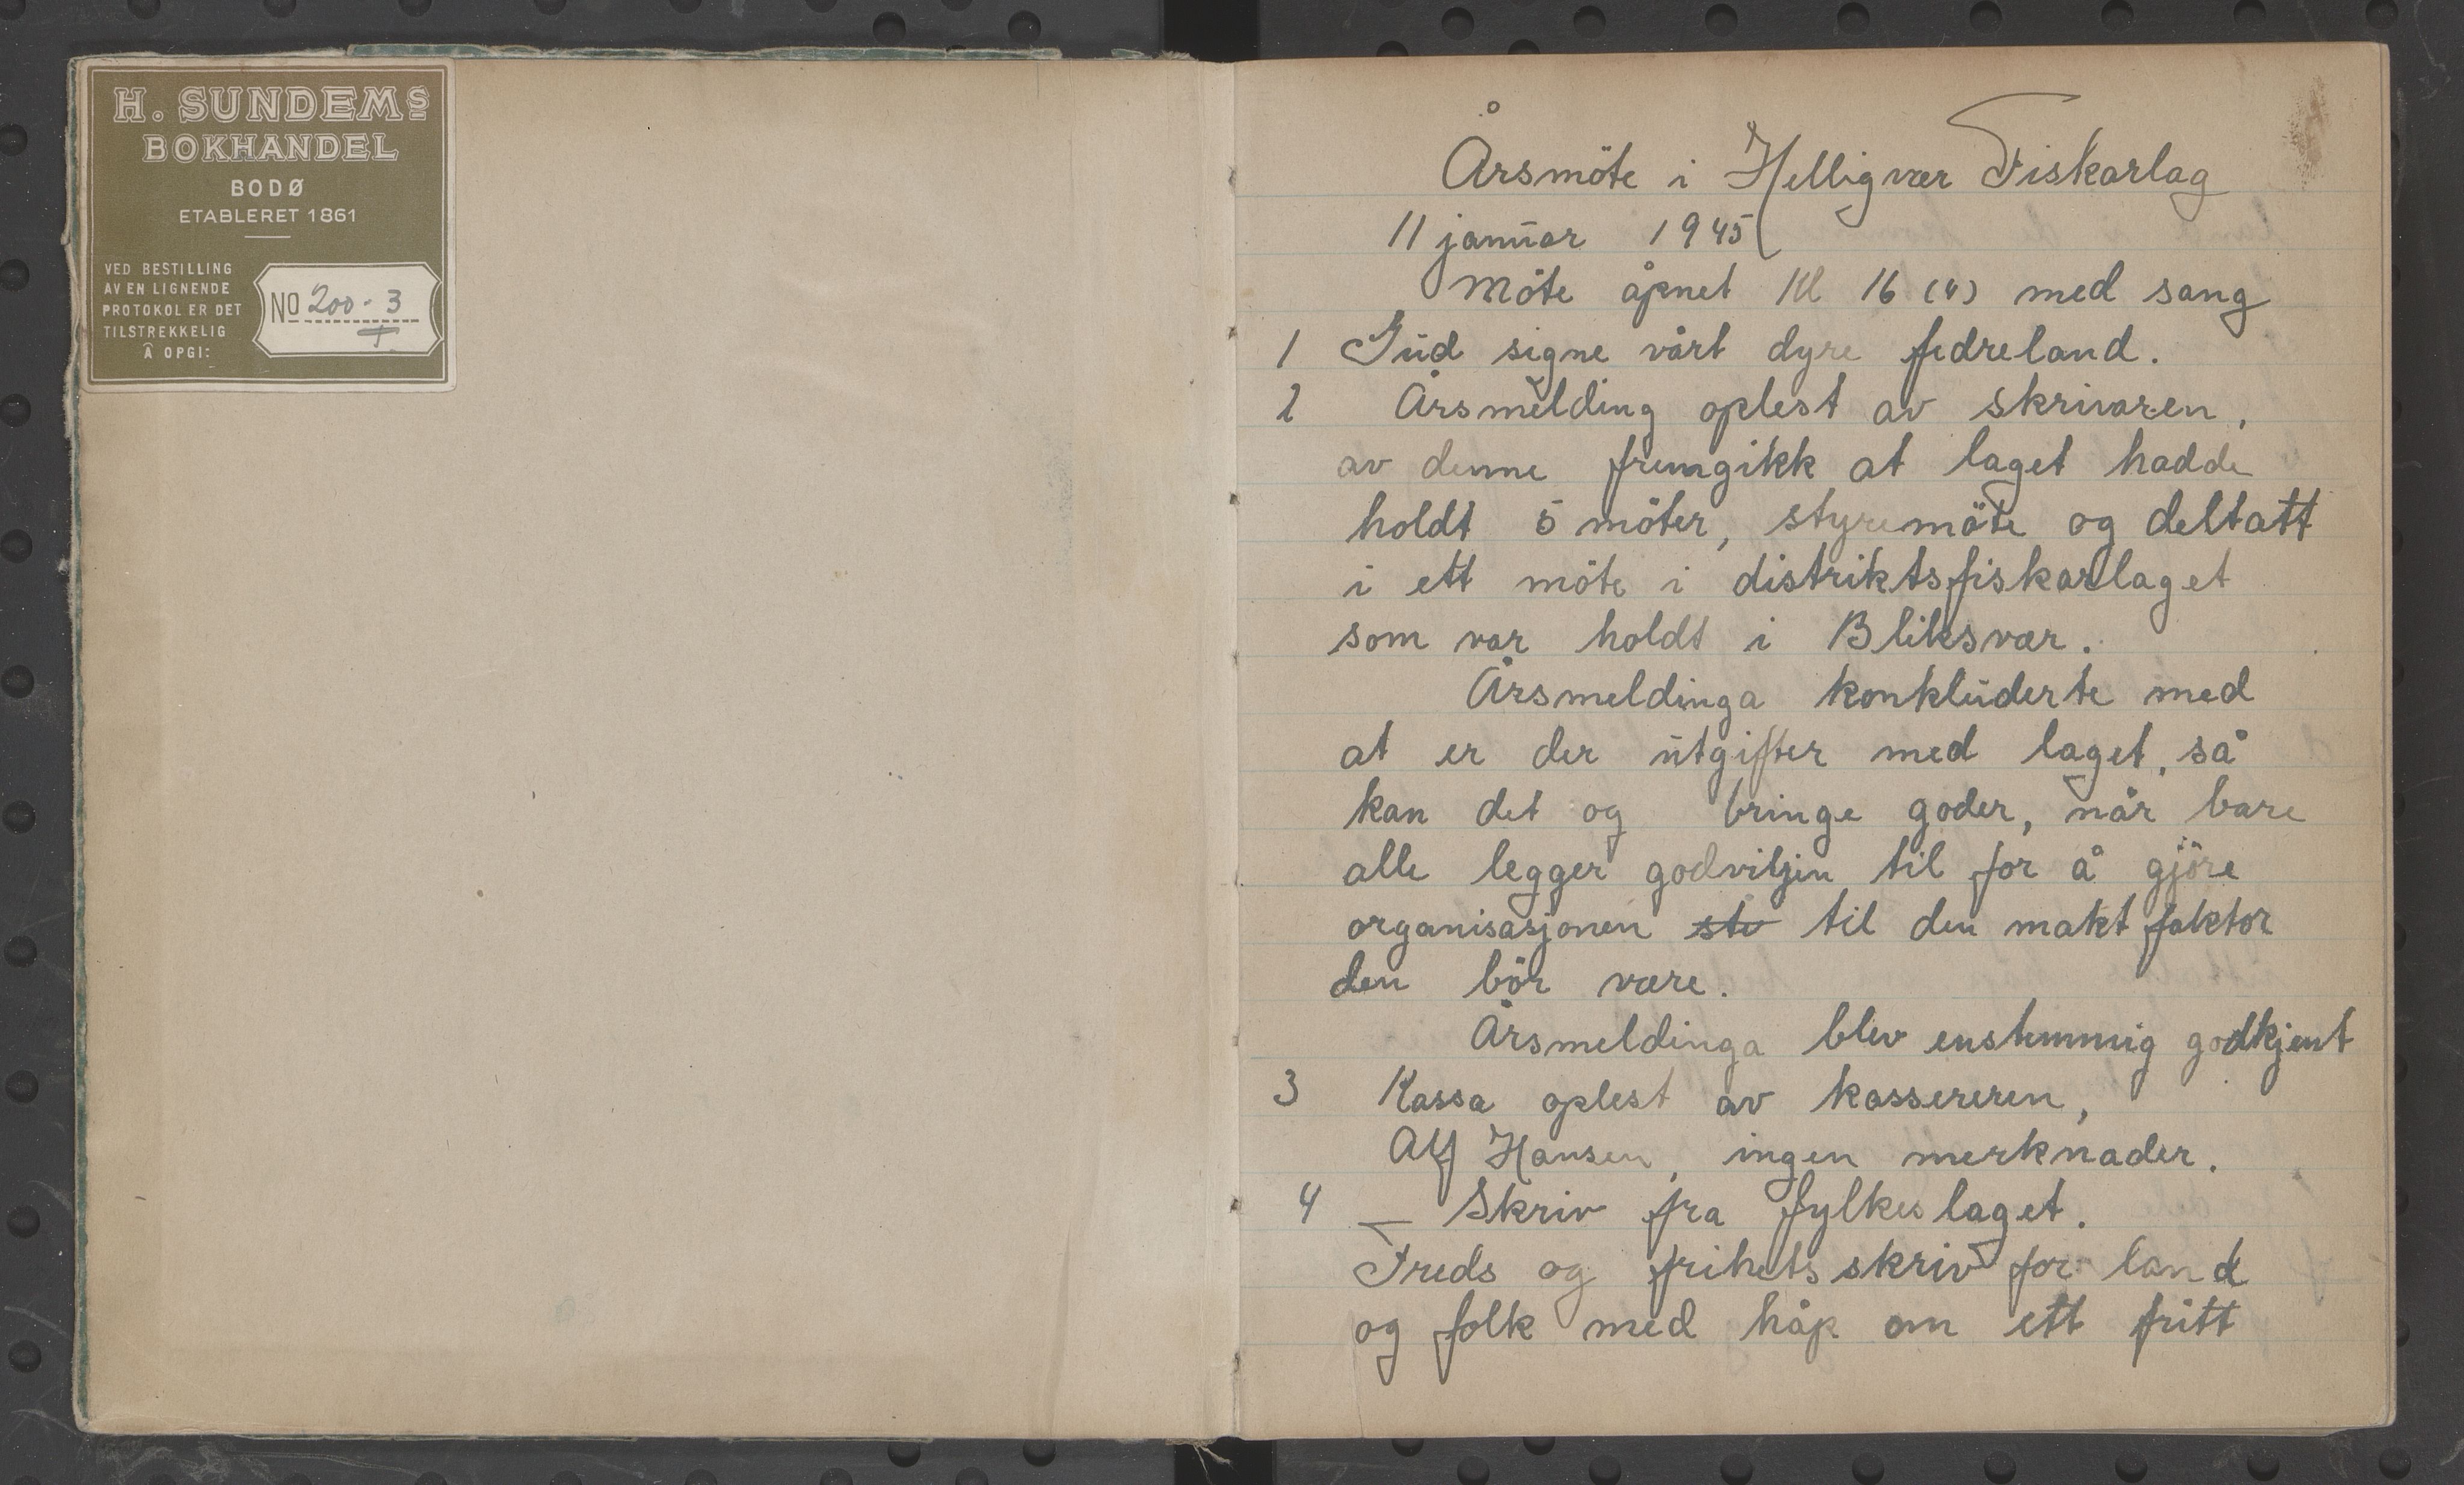 H. SUNDEMS
BOKHANDEL
BODØ
ETABLERET 1861
VED BESTILLING
AV EN LIGNENDE
PROTOKOL ER DET
TILSTREKKELIG
Å OPGI:
No 200-3
Årsmöte i Helligvær Fiskarlag
11 januar 1945
Möte åpnet Kl 16 (4) med sang
1 Gud signe vårt dyre fedreland.
2 Årsmelding oplest av skrivaren,
av denne fremgikk at laget hadde
holdt 5 möter, styremöte og deltatt
i ett möte i distriktsfiskarlaget
som var holdt i Bliksvær.
Årsmeldinga konkluderte med
at er der utgifter med laget, så
kan det og bringe goder, når bare
alle legger godviljin til for å gjöre
organisasjonen stv til den makt faktor
den bör være.
Årsmeldinga blev enstemmig godkjent
3 Kassa oplest av kassereren,
Alf Hansen, ingen merknader.
4 — Skriv fra fylkeslaget.
Freds og frihets skriv for land
og folk med håp om ett fritt